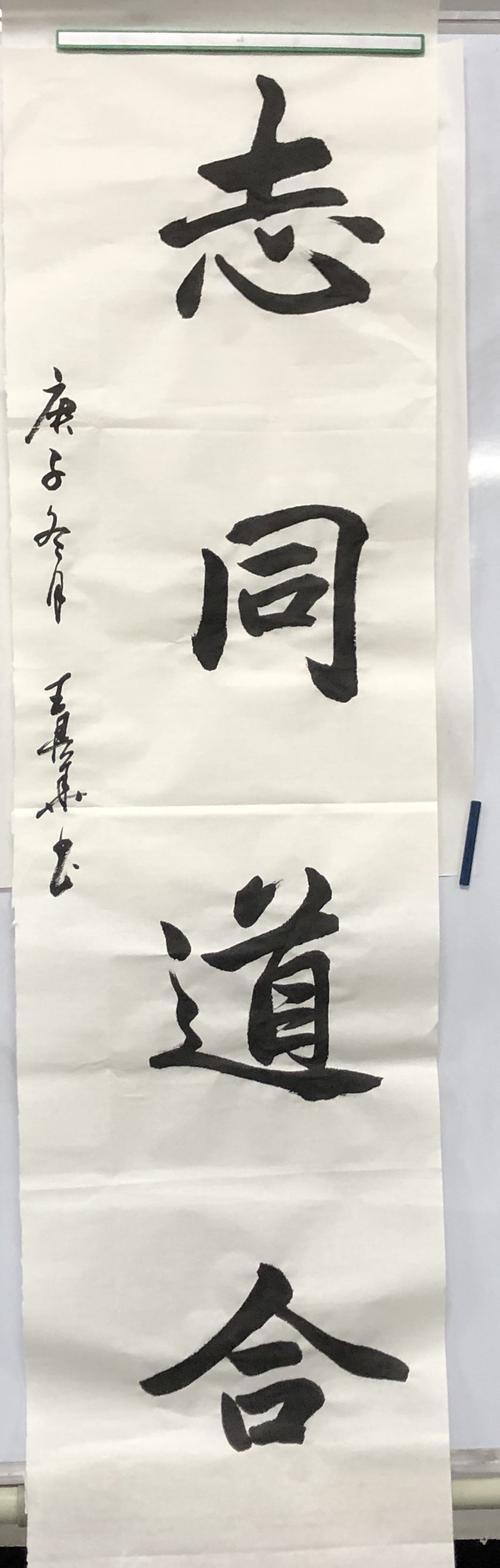 志同道合
庚子冬月 王其華书